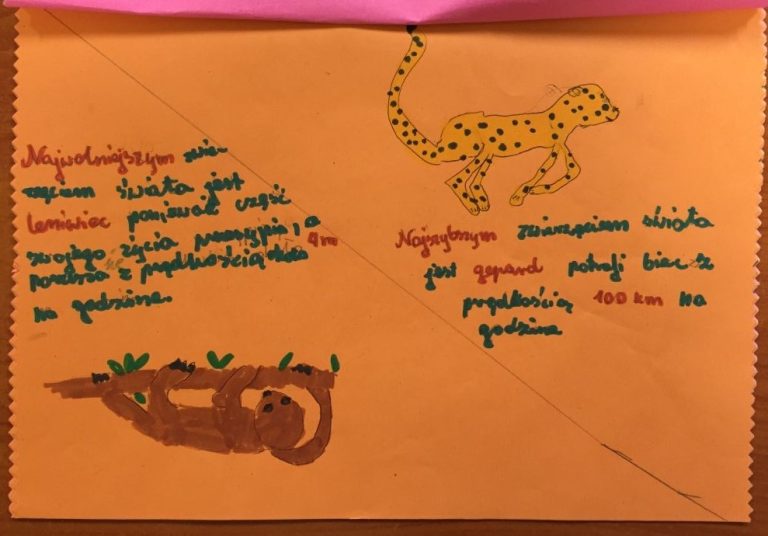 Najwolniejszym zwie-
rzęciem świata jest
leniwiec ponieważ część
swojego życia przesypia, a
porusza z prędkością około 4m
na godzinę.
Najszybszym zwierzęciem świata
jest gepard potrafi biec z
prędkością 100 km na
godzinę